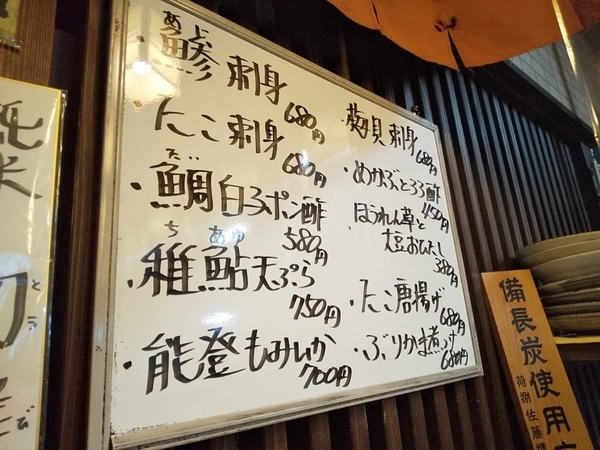 あじ
・鯵刺身
680円
たこ刺身
680円
だい
・鯛白子ポン酢
580円
ち あゆ
・稚鮎天ぷら
750円
・能登もみいか
700円
・刺身
680円
・めかぶとろろ酢
450円
ほうれん草と
大豆おひたし
380円
・たこ唐揚げ
680円
・ぶりかま煮つけ
680円
純米
とら
備長炭使用
荷捌佐藤